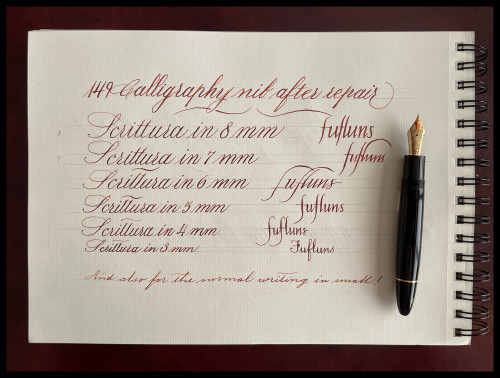 149 Calligraphy nib, after repair
8 Scrittura in 8 mm fufluns
7 Scrittura in 7 mm fufluns
Scrittura in 6 mm fufluns
Scrittura in 5 mm fufluns
Scrittura in 4 mm fufluns
Scrittura in 3 mm Fufluns
And also for the normal writing in small!